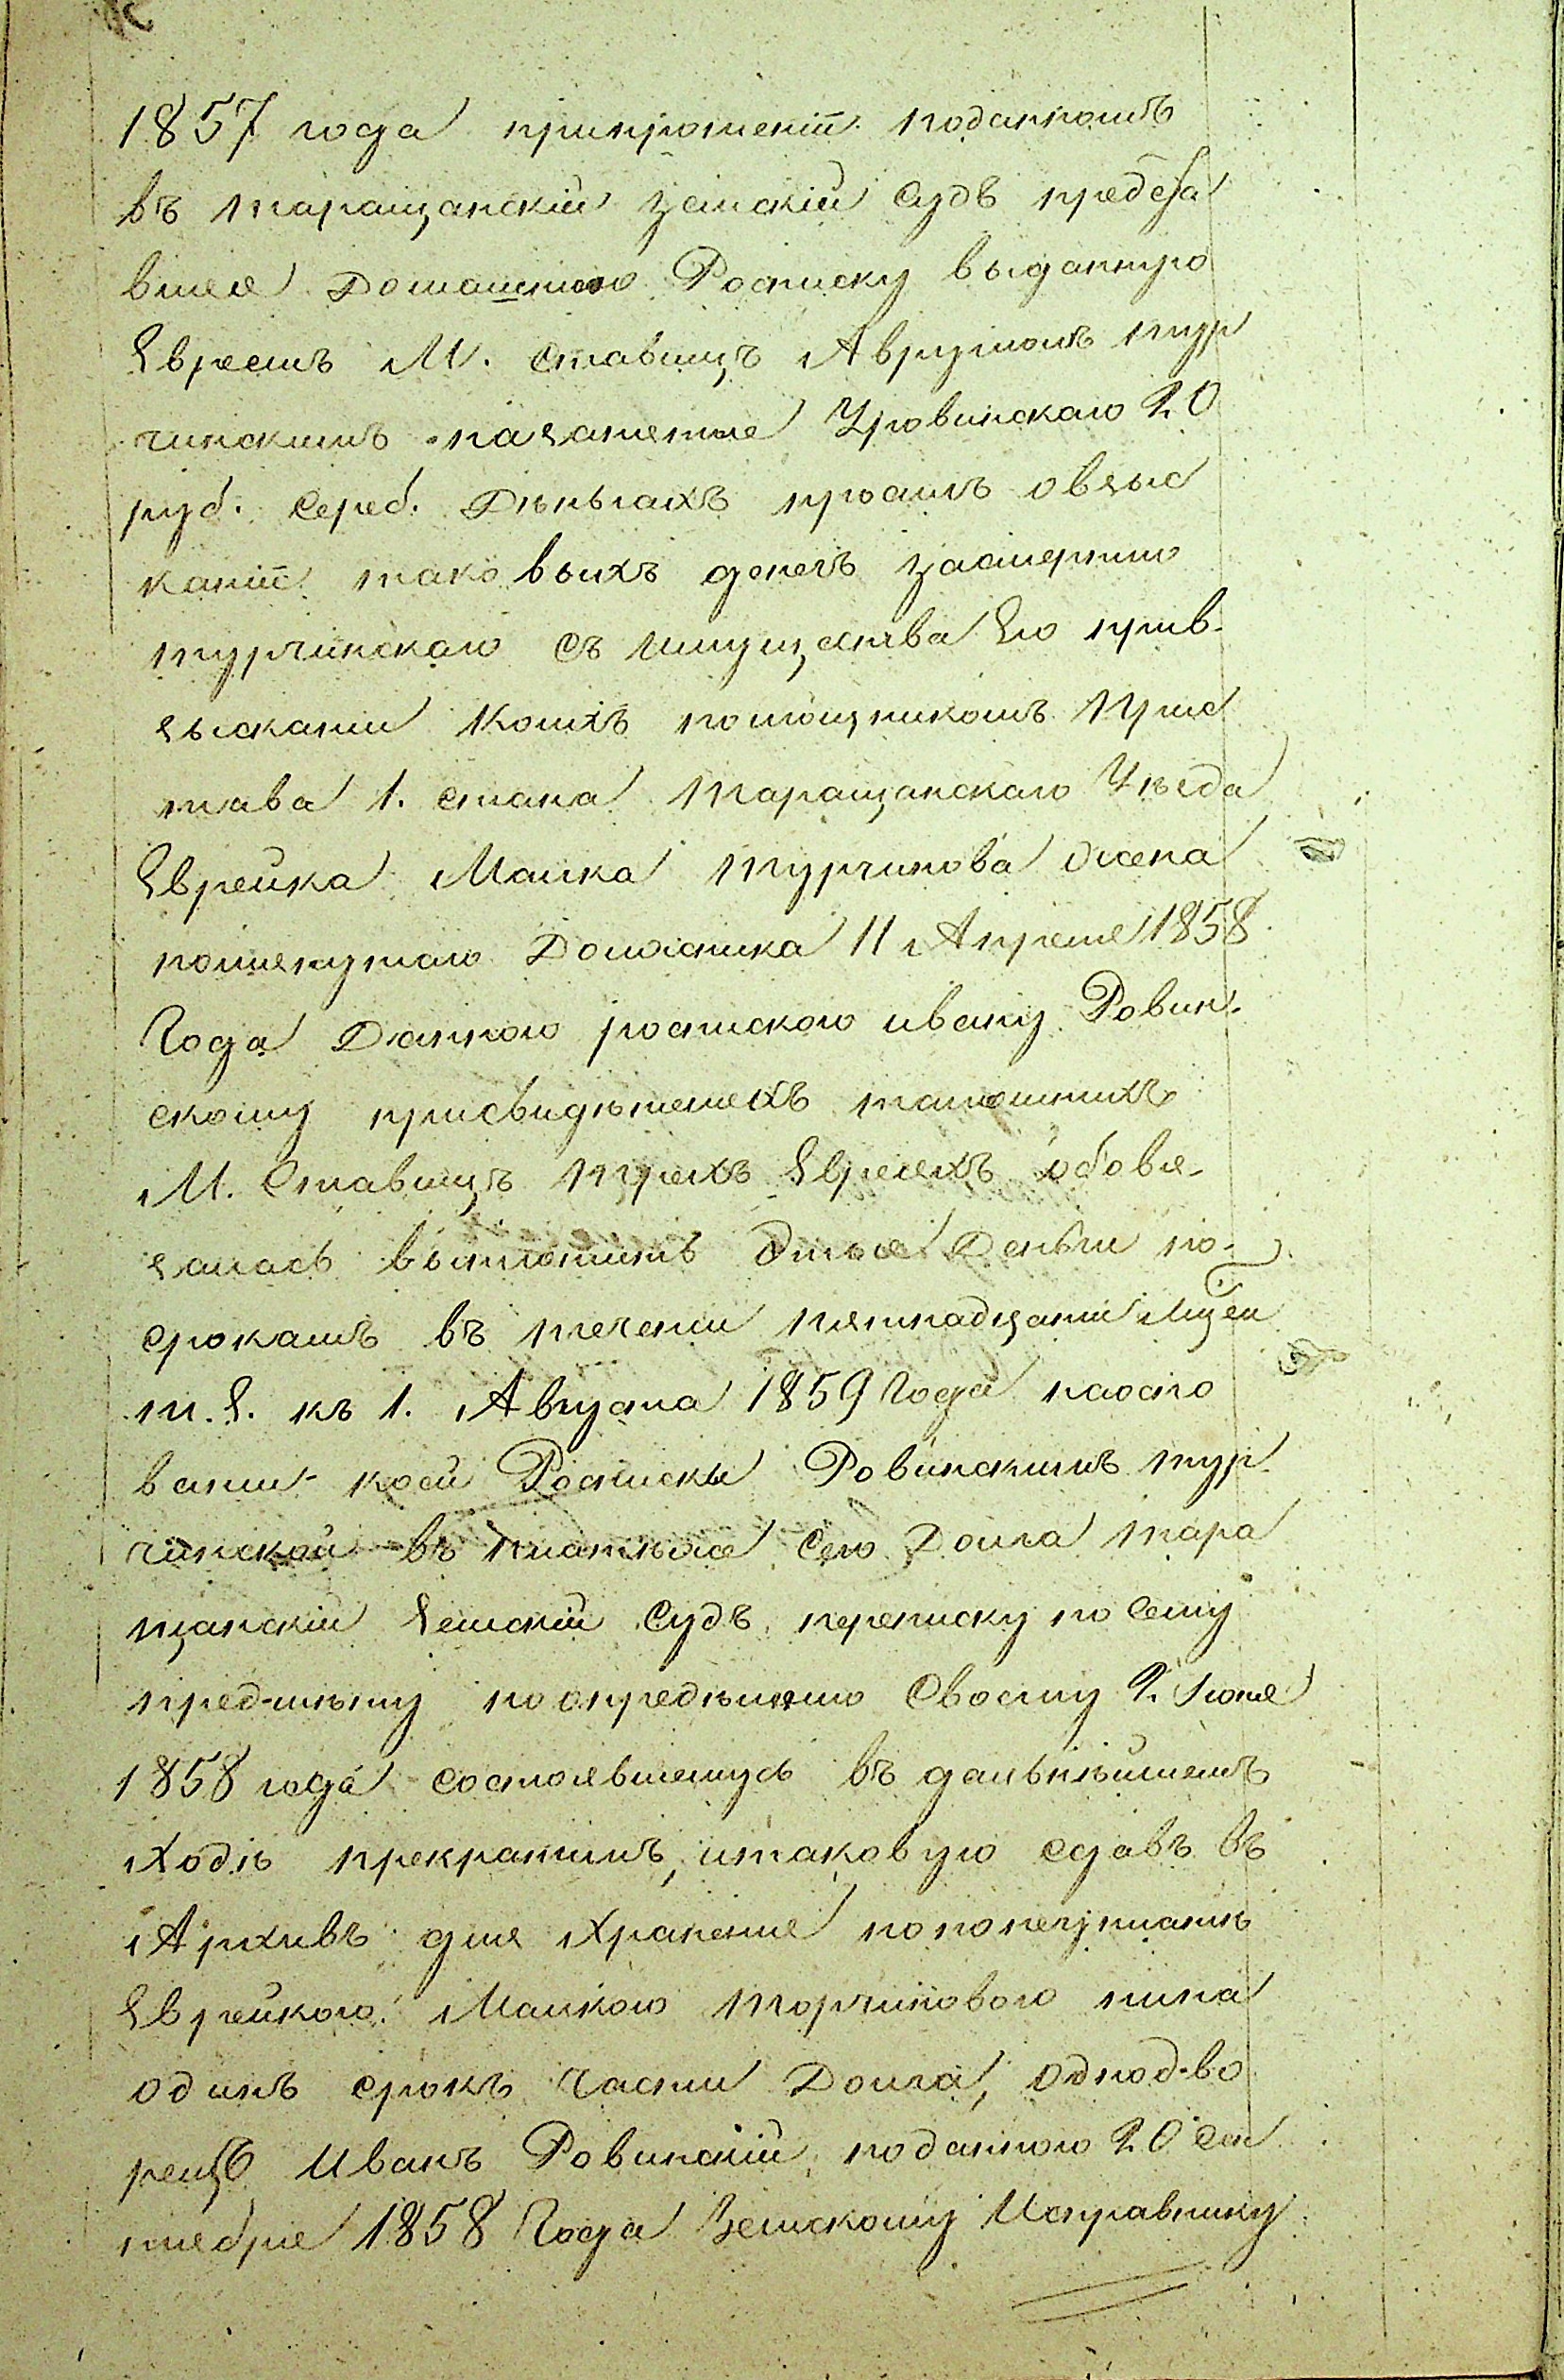 1857 года припрошеніи поданномъ
въ таращанскій земскій Судъ предста
вилъ домашнюю Росписку выданную
Евреемъ М. Ставищъ Аврумомъ тур
чинскимъ назанятые Уровинскаго 20
руб. Сереб. Дѣньгахъ просилъ овзыс
каніи таковыхъ денегъ засмертію
турчинскаго съ имущества Его прив-
зысканіи коихъ помощникомъ прис
тава 1. стана таращанскаго Уѣзда
Еврейка Малка турчинова жена
помянутаго Должника 11 Апреля 1858
Года Данною роспискою ивану Ровин-
скому присвидѣтелехъ тамошнихъ
М. Ставищъ трехъ Евреяхъ обовя-
залась выплотить Этые Деньги по-
срокамъ въ теченіи пятнадцати Мцей
т. е. къ 1. Августа 1859 Года наосно
ваніи коей Росписки Ровинскимъ тур
чинской въ платѣже сего Долга тара
щанскій Земскій Судъ переписку по сему
пред-мѣту поопредѣлению Своему 2. Июня
1858 года состоявшемусь въ дальнѣйшемъ
Ходѣ прекратилъ, итаковую сдавъ въ
Архивъ для Храненія пополучатѣ
Еврейкою Малкою торчиновою нина
одинъ срокъ части Долга, однод-во
рецъ Иванъ Ровинскій поданного 20 сен
тября 1858 Года Земскому Исправнику